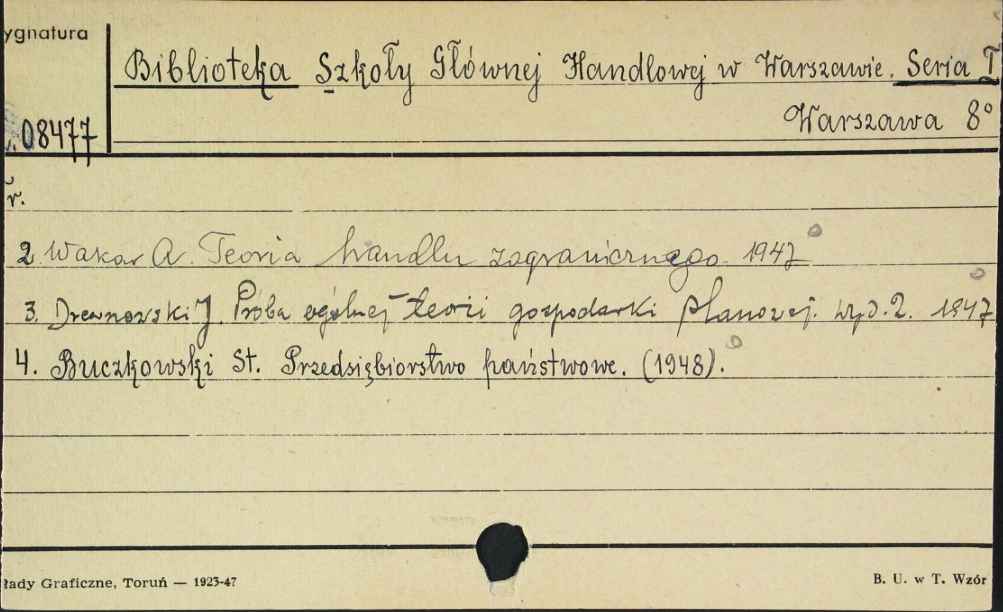 ygnatura
Biblioteka Szkoły Głównej Handlowej w Warszawie. Seria I
08477
Warszawa 8°
r.
2. Wakar A. Teoria handlu zagranicznego 1947
3. Drewnowski J. Próba ogólnej teorii gospodarki planowej. Wyd. 2. 1947
4. Buczkowski St. Przedsiębiorstwo państwowe. (1948).
łady Graficzne, Toruń — 1923-47
B. U. w T. Wzór